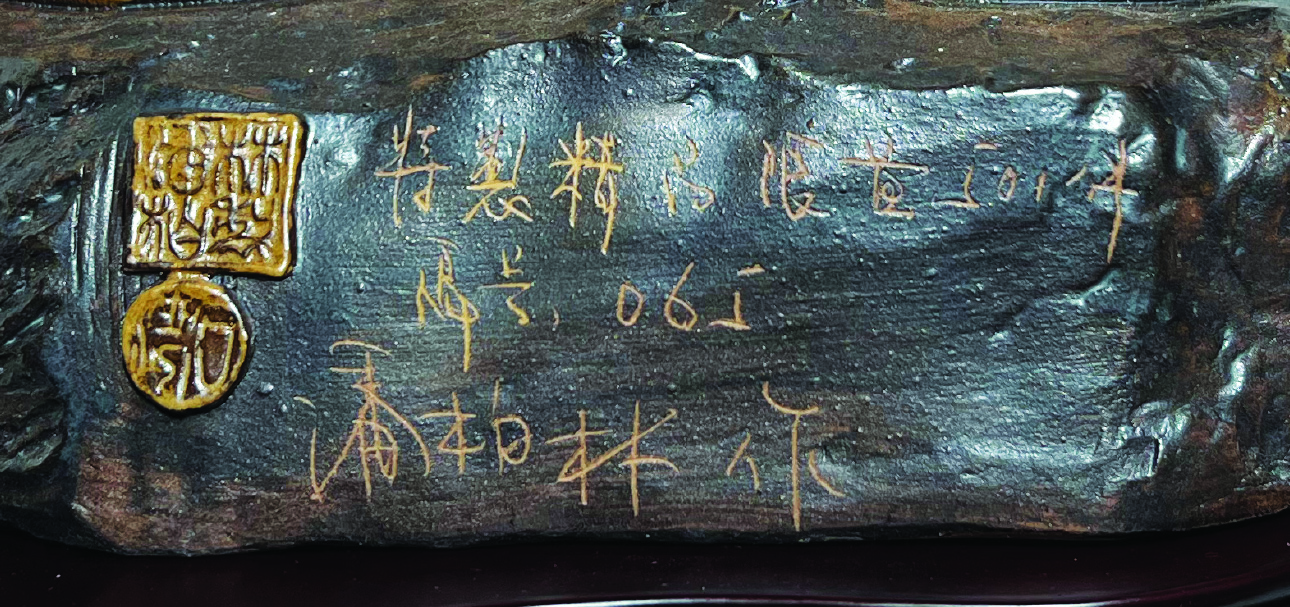 特製精品限量501件
编号:065
潘柏林作